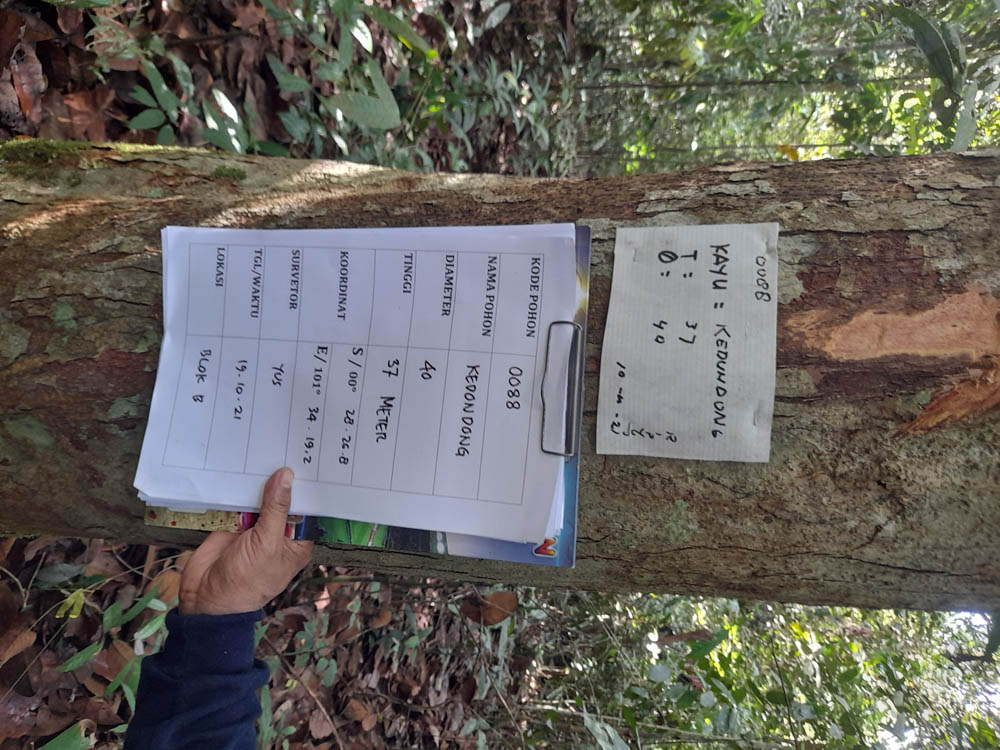 0088
KAYU = KEDUNDONG
T = 37
Ø = 40
10 - - 21
N
KODE POHON 0088
NAMA POHON KEDONDONG
DIAMETER 40
TINGGI 37 METER
KOORDINAT S / 00° 28.26.8
E/ 101° 34.19,2
SURVETOR YUS
TGL/WAKTU 19-10-21
LOKASI BLOK B